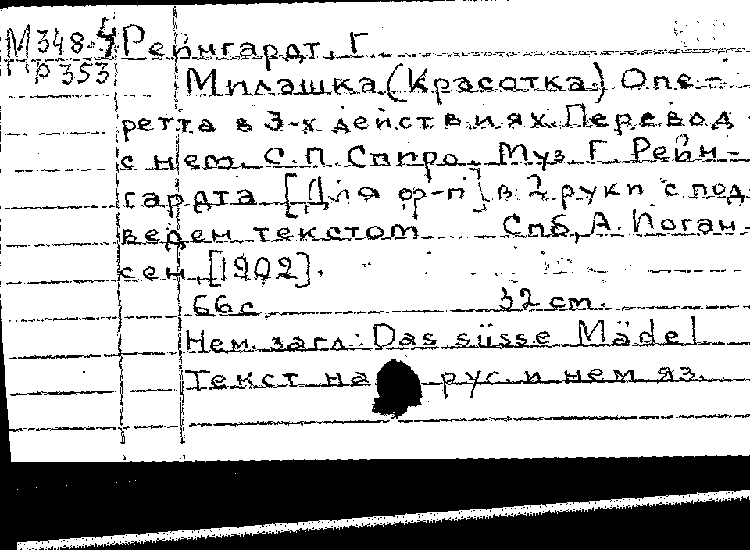 М 348-4 Рейнгардт, Г.
Р 353
Милашка (Красотка.) Опе-
ретта в 3-х действиях. Перевод
с нем. С.П. Спиро. Муз. Г. Рейн-
гардта. [Для ф-п] в 2 руки с под-
веден текстом Спб, А. Иоган-
сен, [1902].
66 с. 32 см.
Нем. загл.: Das süsse Mädel
Текст на рус. и нем яз.